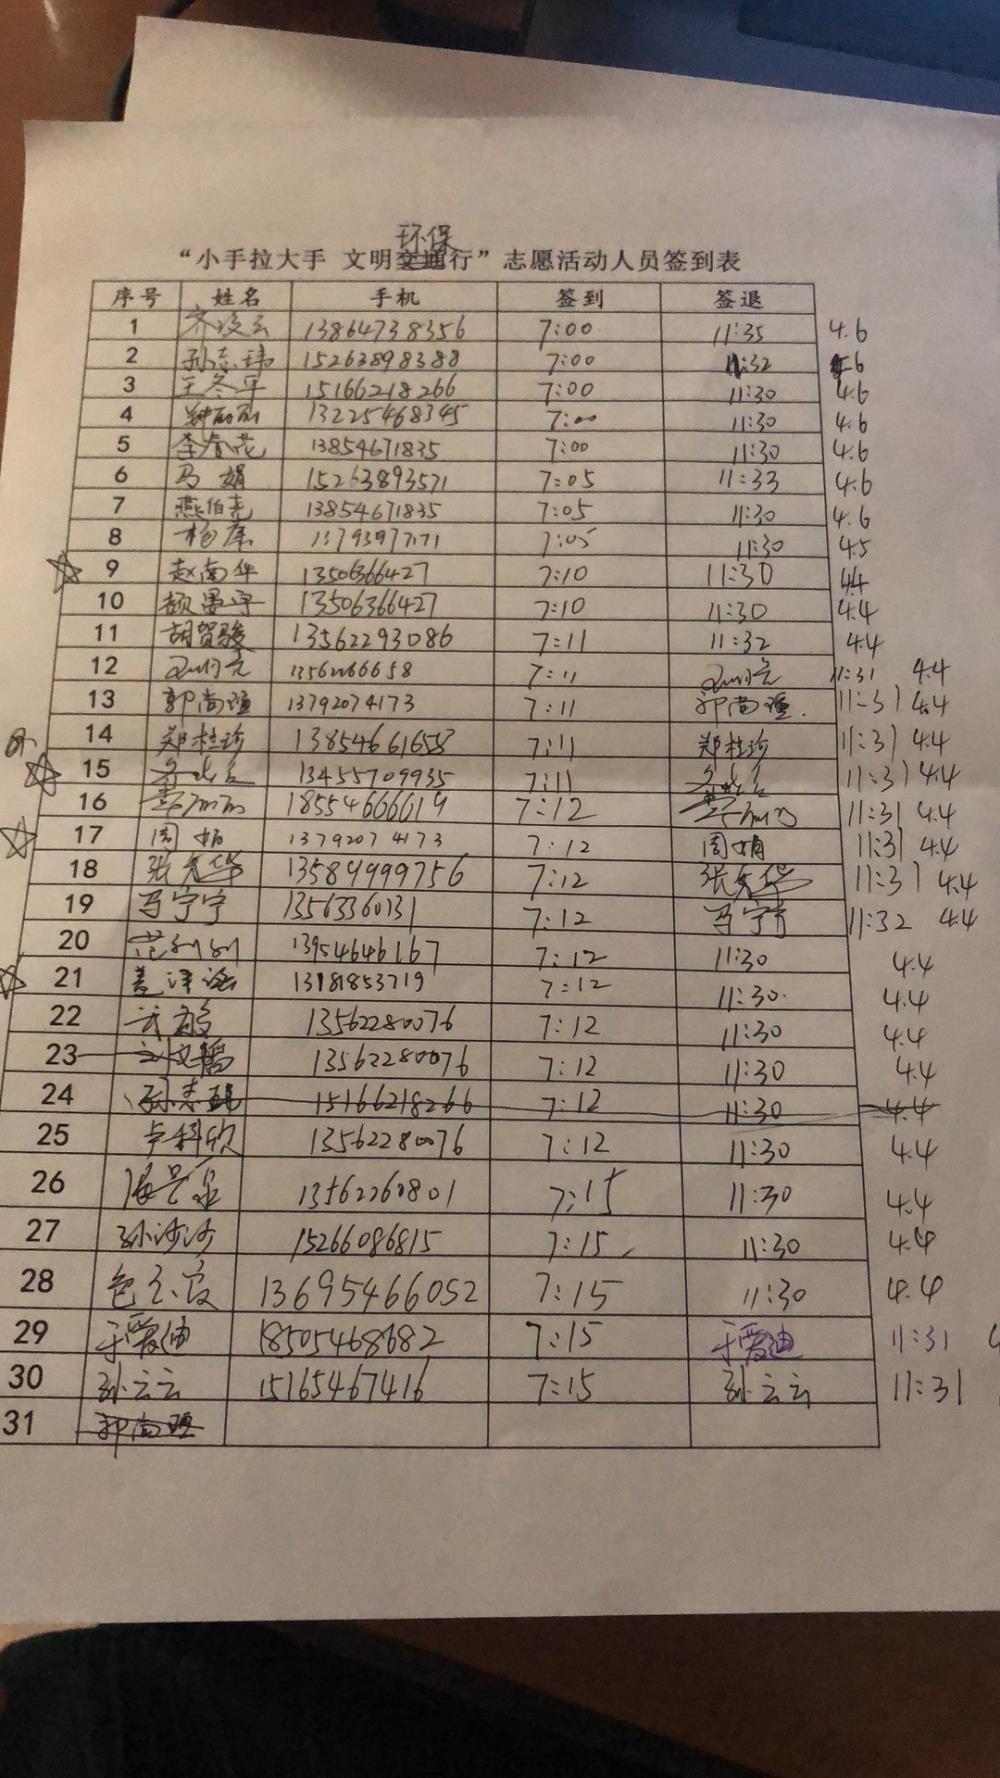 环保
“小手拉大手 文明交通行”志愿活动人员签到表
序号 姓名 手机 签到 签退
1 13864738356 7:00 11:35 4.6
2 孙志玮 15263898388 7:00 11:32 4.6
3 王冬军 15166218266 7:00 11:30 4.6
4 13225468345 7:00 11:30 4.6
5 李春花 13854671835 7:00 11:30 4.6
6 马娟 15263893571 7:05 11:33 4.6
7 燕伯尧 13854671835 7:05 11:30 4.6
8 杨 13793977171 7:05 11:30 4.5
9 赵南华 13506366427 7:10 11:30 4.4
10 13506366427 7:10 11:30 4.4
11 胡贺骏 13562293086 7:11 11:32 4.4
12 7:11 11:31 4.4
13 郭尚瑾 13792074173 7:11 郭尚瑾. 11:31 4.4
14 郑桂珍 13854661658 7:11 郑桂珍 11:31 4.4
15 13455709935 7:11 11:31 4.4
16 李丽丽 18554666619 7:12 李丽丽 11:31 4.4
17 周娟 13792074173 7:12 周娟 11:31 4.4
18 张 华 13589999756 7:12 张 华 11:31 4.4
19 马宁宁 13563360131 7:12 马宁宁 11:32 4.4
20 13954646167 7:12 11:30 4.4
21 盖 13181853719 7:12 11:30. 4.4
22 13562280076 7:12 11:30 4.4
23 刘文 13562280076 7:12 11:30 4.4
24 孙志 15166218266 7:12 11:30 4.4
25 卢科欣 13562280076 7:12 11:30 4.4
26 13562260801 7:15 11:30 4.4
27 孙沙沙 15266086815 7:15 11:30 4.4
28 13695466052 7:15 11:30 4.4
29 于爱迪 18505468682 7:15 于爱迪 11:31
30 孙云云 15165467416 7:15 孙云云 11:31
31 郭尚瑾